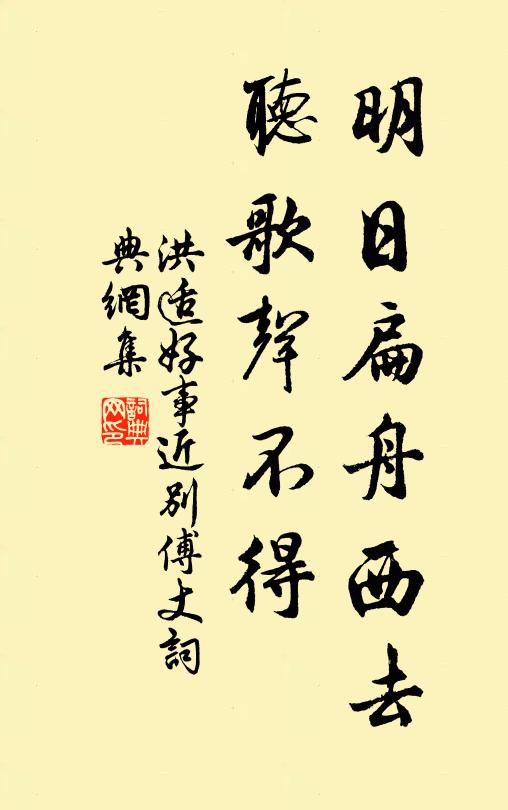 明日扁舟西去
聽歌聲不得
洪适好事近別傅丈詞
典網集
詞典網印